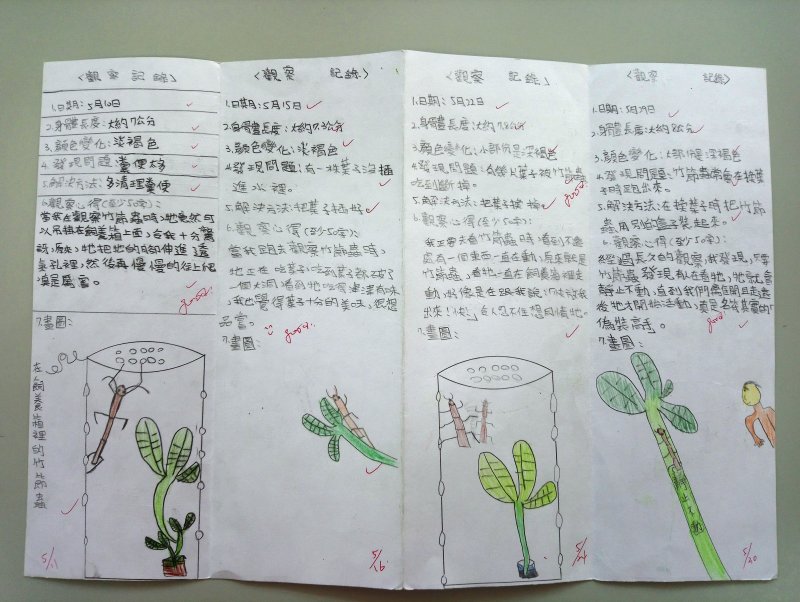 〈觀察記錄〉
1.日期:5月10日
2.身體長度:大約7公分
3.顏色變化:淡褐色
4.發現問題:糞便太多
5.解決方法:多清理糞便
6.觀察心得(至少50字):
當我在觀察竹節蟲時,牠竟然可
以吊掛在飼養箱上面,令我十分驚
訝,原來,牠把牠的腳伸進透
氣孔裡,然後再慢慢的往上爬
真是厲害。
good.
7.畫圖:
在飼養箱裡的竹節蟲
5/11
〈觀察 記錄〉
1.日期:5月15日
2.身體長度:大約7.3公分
3.顏色變化:淡褐色
4.發現問題:有一株葉子沒插
進水裡。
5.解決方法:把葉子插好
6.觀察心得(至少50字):
當我回去觀察竹節蟲時,
牠正在吃葉子,吃到葉子都破了
一個大洞,看到牠吃得津津有味
,我也覺得葉子十分的美味,很想
品嘗。
good.
7.畫圖:
5/16
〈觀察 記錄〉
1.日期:5月22日
2.身體長度:大約7.8公分
3.顏色變化:小部份是深褐色
4.發現問題:有幾片葉子被竹節蟲
吃到斷掉。
good.
5.解決方法:把葉子換掉
6.觀察心得(至少50字):
我正要去看竹節蟲時,看到不遠
處有一個東西一直在動,原來就是
竹節蟲,看牠一直在飼養箱裡走
動,好像是在跟我說:「快放我
出來!快!」令人忍不住想同情牠。
good.
7.畫圖:
5/24
〈觀察 記錄〉
1.日期:5月29日
2.身體長度:大約8公分
3.顏色變化:大部份是深褐色
4.發現問題:竹節蟲常會在換葉
子時跑出來。
5.解決方法:在換葉子時把竹節
蟲用別的盒子裝起來。
6.觀察心得(至少50字):
經過長久的觀察,我發現,只要
竹節蟲發現有人在看牠,牠就會
靜止不動,直到我們離開且走遠
後牠才開始活動,真是名符其實的「
偽裝高手」。
good.
7.畫圖:
靜止不動
5/30